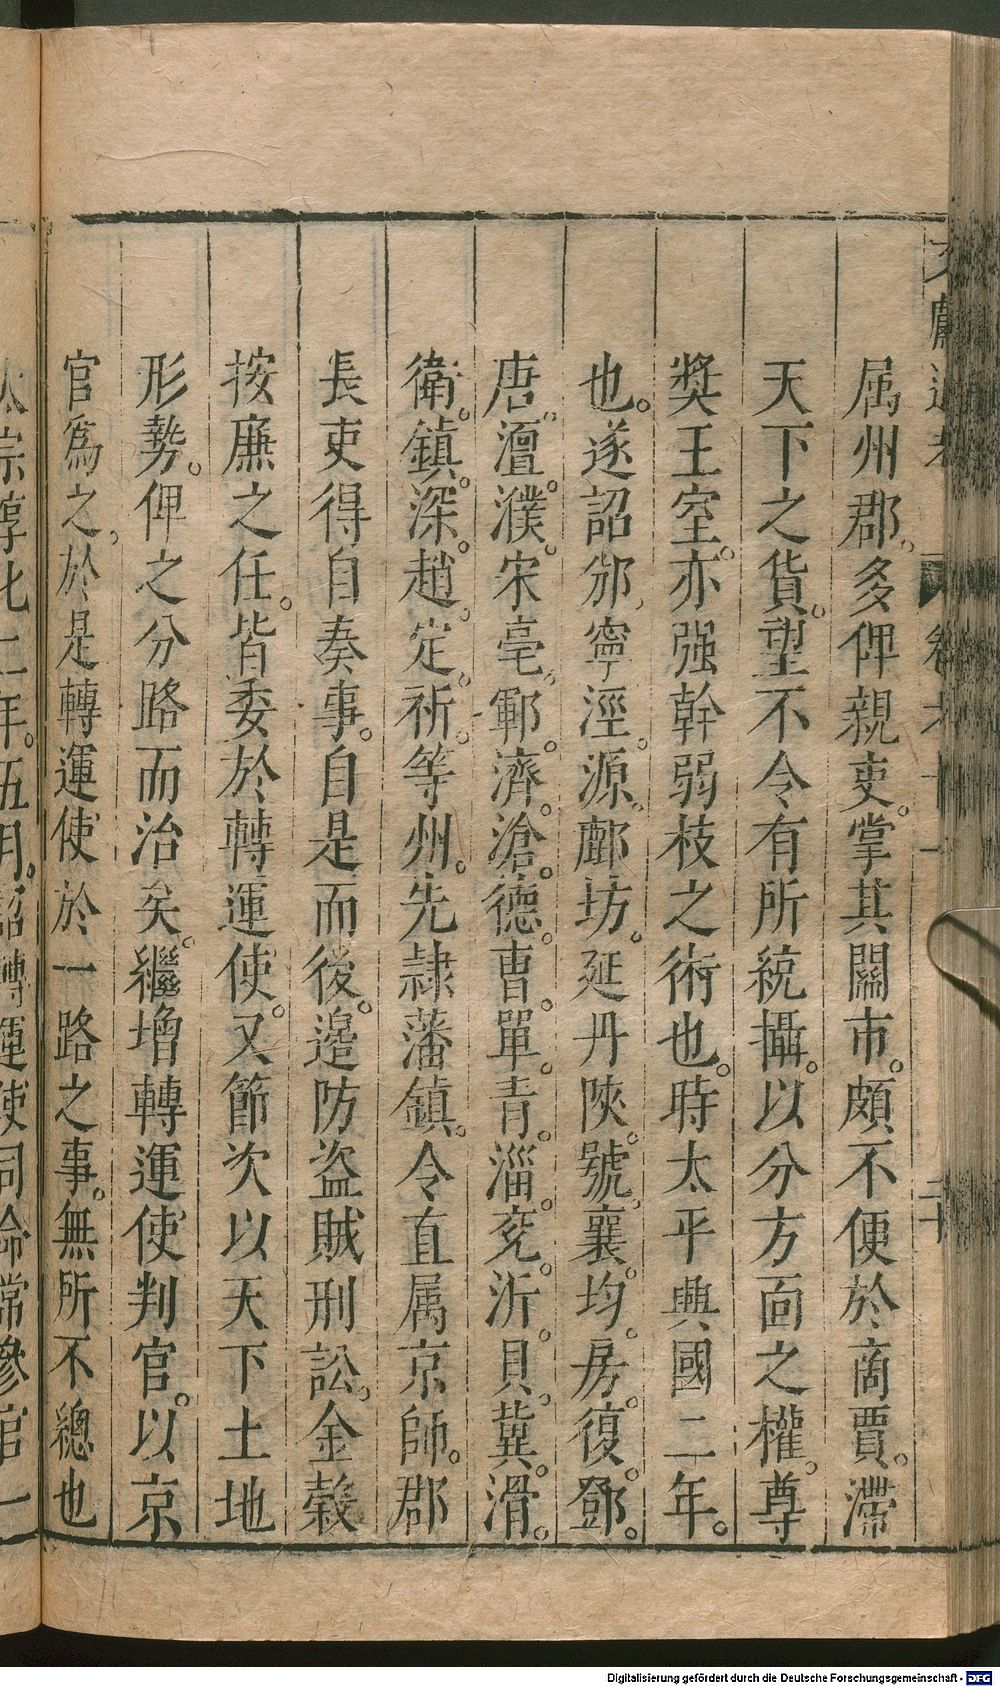 文獻通考 卷六十一 二十
属州郡。多俾親吏。掌其關市。頗不便於商賈。滯
天下之貨。望不令有所統攝。以分方面之權。尊
奬王室。亦强幹弱枝之術也。時太平興國二年。
也。遂詔邠、寧、涇、源、鄜坊。延丹陝。號、襄、均。房。復。鄧。
唐。澶。濮。宋亳、鄆。濟。滄。德。曹。單。青。淄。兖。沂。貝、冀。滑。
衛。鎮。深。趙。定。祈。等州。先隷藩鎮。令直属京師。郡
長吏得自奏事。自是而後。邉防盗賊刑訟、金榖
按亷之任。皆委於轉運使。又節次以天下土地
形勢。俾之分路而治矣。繼増轉運使判官。以京
官爲之、於是轉運使於一路之事。無所不總也
太宗淳化二年。五月。詔轉運使同命常參官一
Digitalisierung gefördert durch die Deutsche Forschungsgemeinschaft - DFG